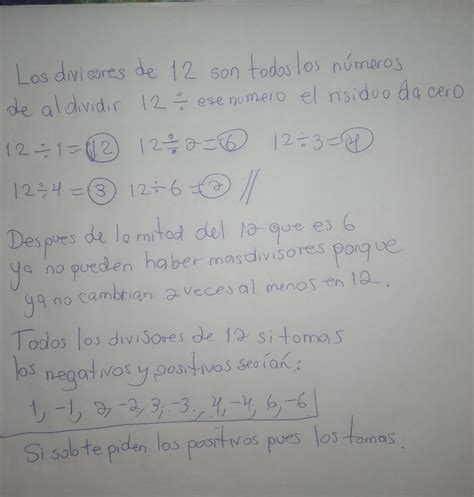 Los divisores de 12 son todos los números
de al dividir 12 ÷ ese numero el risiduo da cero
12 ÷ 1 = 12 12 ÷ 2 = 6 12 ÷ 3 = 4
12 ÷ 4 = 3 12 ÷ 6 = 2 //
Despues de la mitad del 12 que es 6
ya no pueden haber mas divisores porque
ya no cambrian 2 veces al menos en 12.
Todos los divisores de 12 si tomas
los negativos y positivos serían:
1, -1, 2, -2, 3, -3, 4, -4, 6, -6
Si solo te piden los positivos pues los tomas.